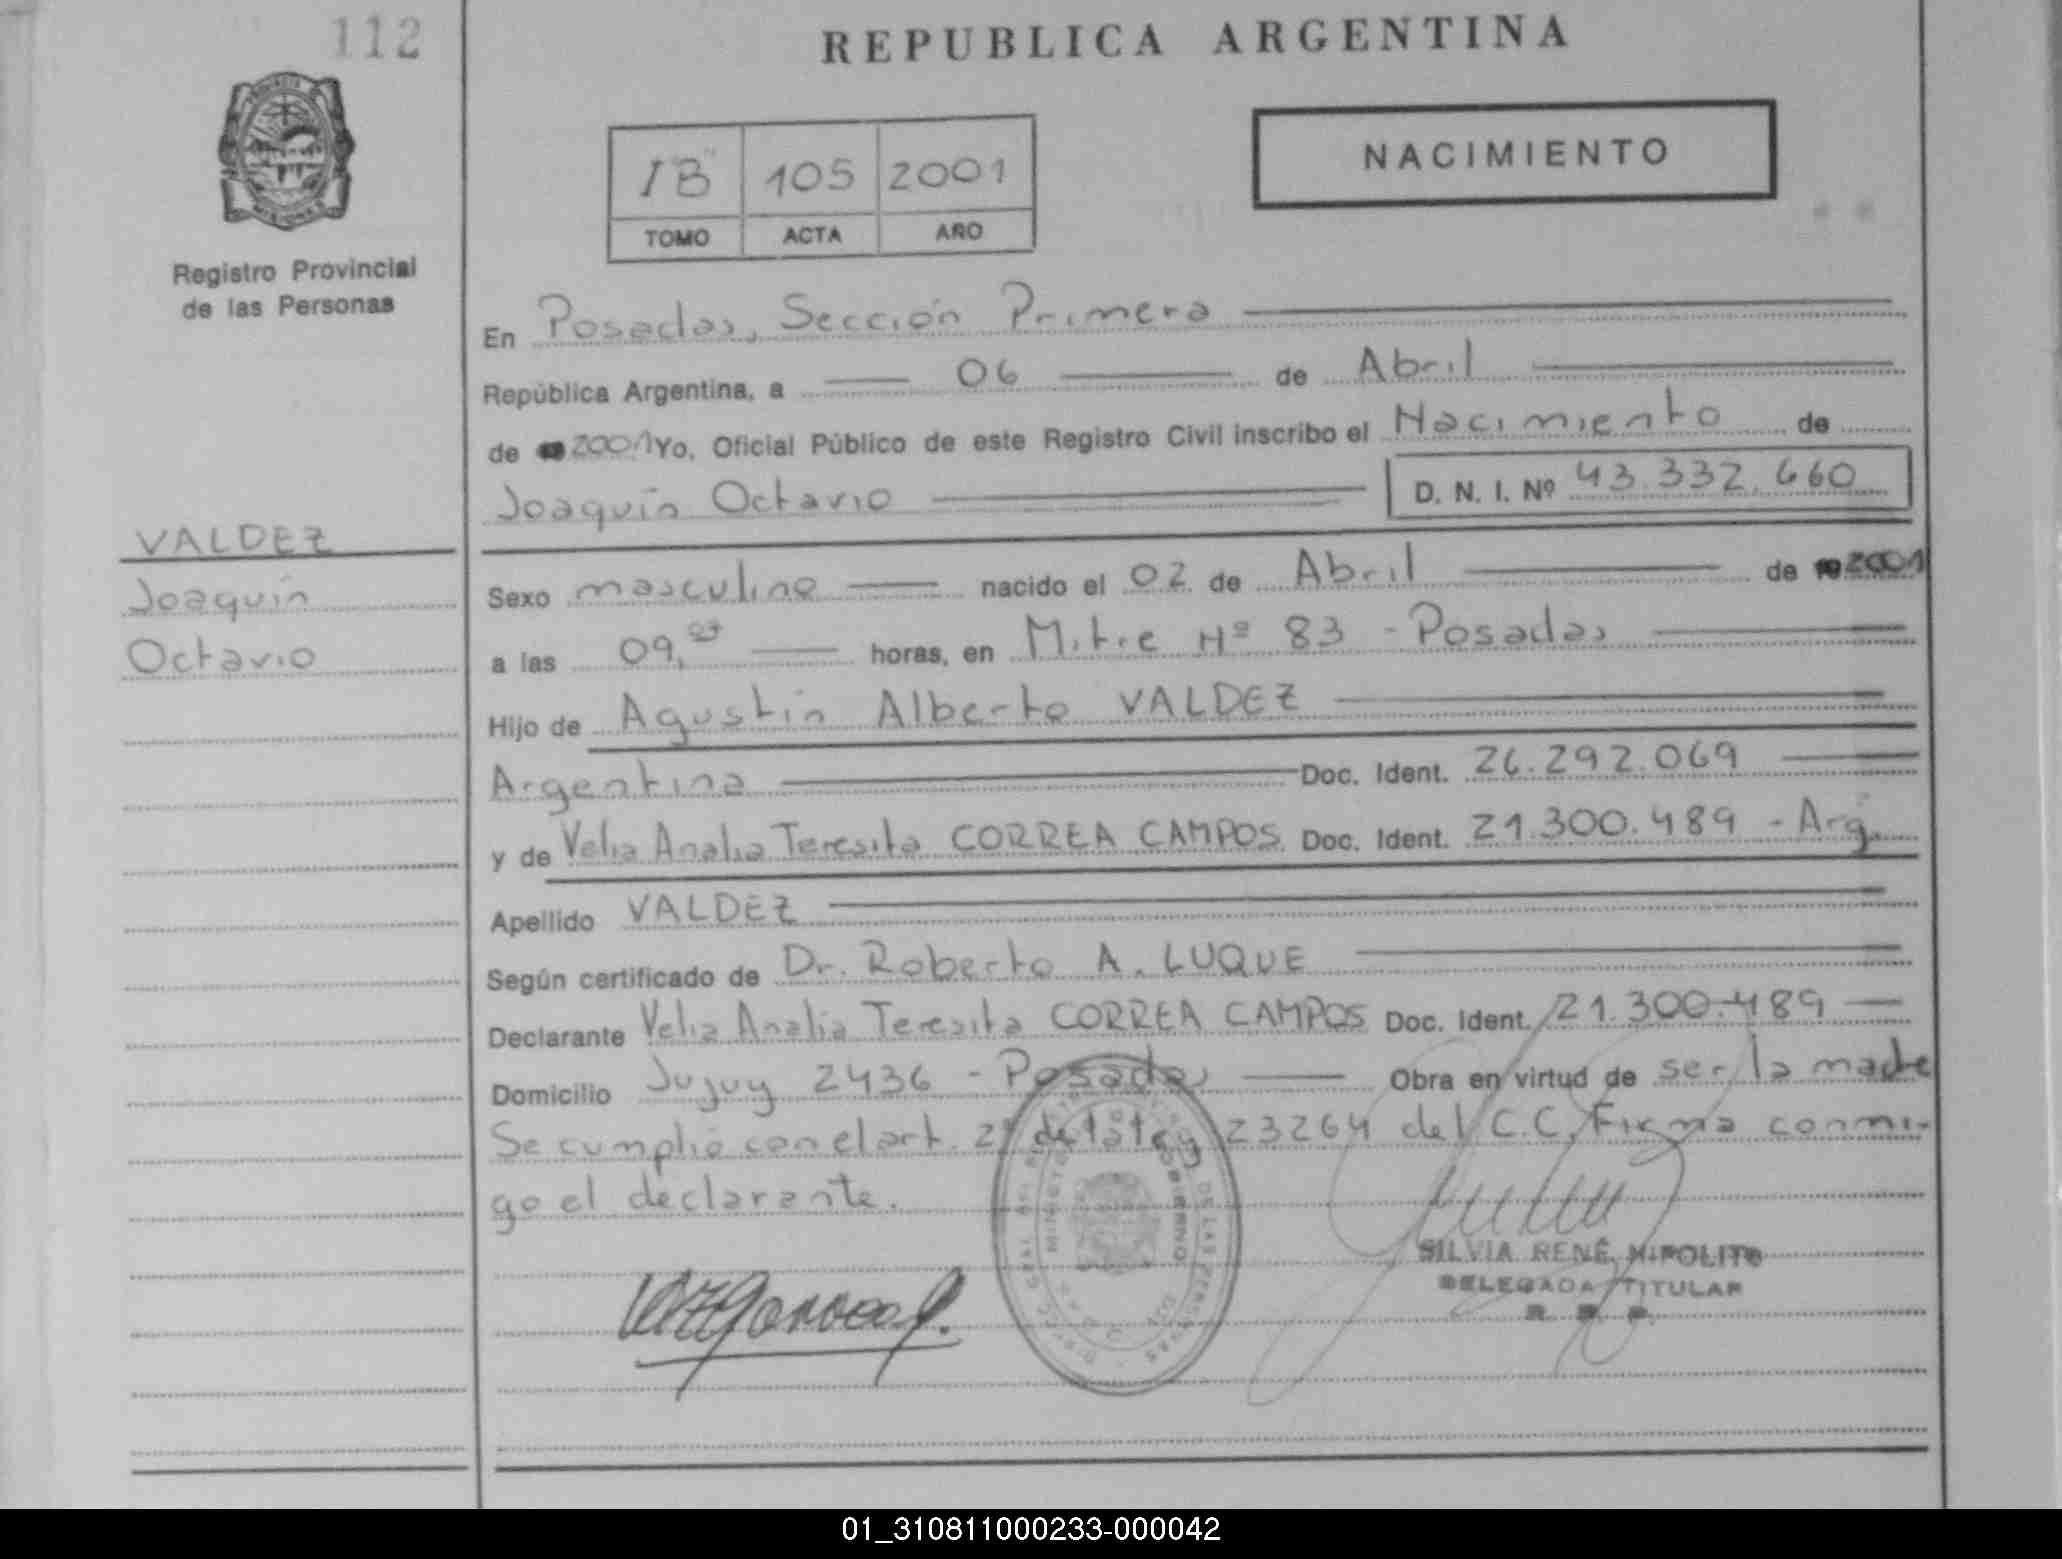 112
REPUBLICA ARGENTINA
NACIMIENTO
I "B" 105 2001
TOMO ACTA AÑO
Registro Provincial
de las Personas
En Posadas, Sección Primera
República Argentina, a 06 de Abril
de 2001 Yo, Oficial Público de este Registro Civil inscribo el Nacimiento de
Joaquín Octavio D. N. I. Nº 43.332.660
VALDEZ
Joaquín
Octavio
Sexo masculino nacido el 02 de Abril de 2001
a las 09, horas, en Mitre Nº 83 - Posadas
Hijo de Agustín Alberto VALDEZ
Argentina Doc. Ident. 26.292.069
y de Velia Analia Teresita CORREA CAMPOS Doc. Ident. 21.300.489 - Arg.
Apellido VALDEZ
Según certificado de Dr. Roberto A. LUQUE
Declarante Velia Analia Teresita CORREA CAMPOS Doc. Ident. 21.300.489
Domicilio Jujuy 2436 - Posadas Obra en virtud de ser la madre
Se cumplió con el art. 2º de la Ley 23264 del C.C. Firma conmi-
go el declarante.
SILVIA RENÉ HIPOLITO
DELEGADA TITULAR
01_310811000233-000042